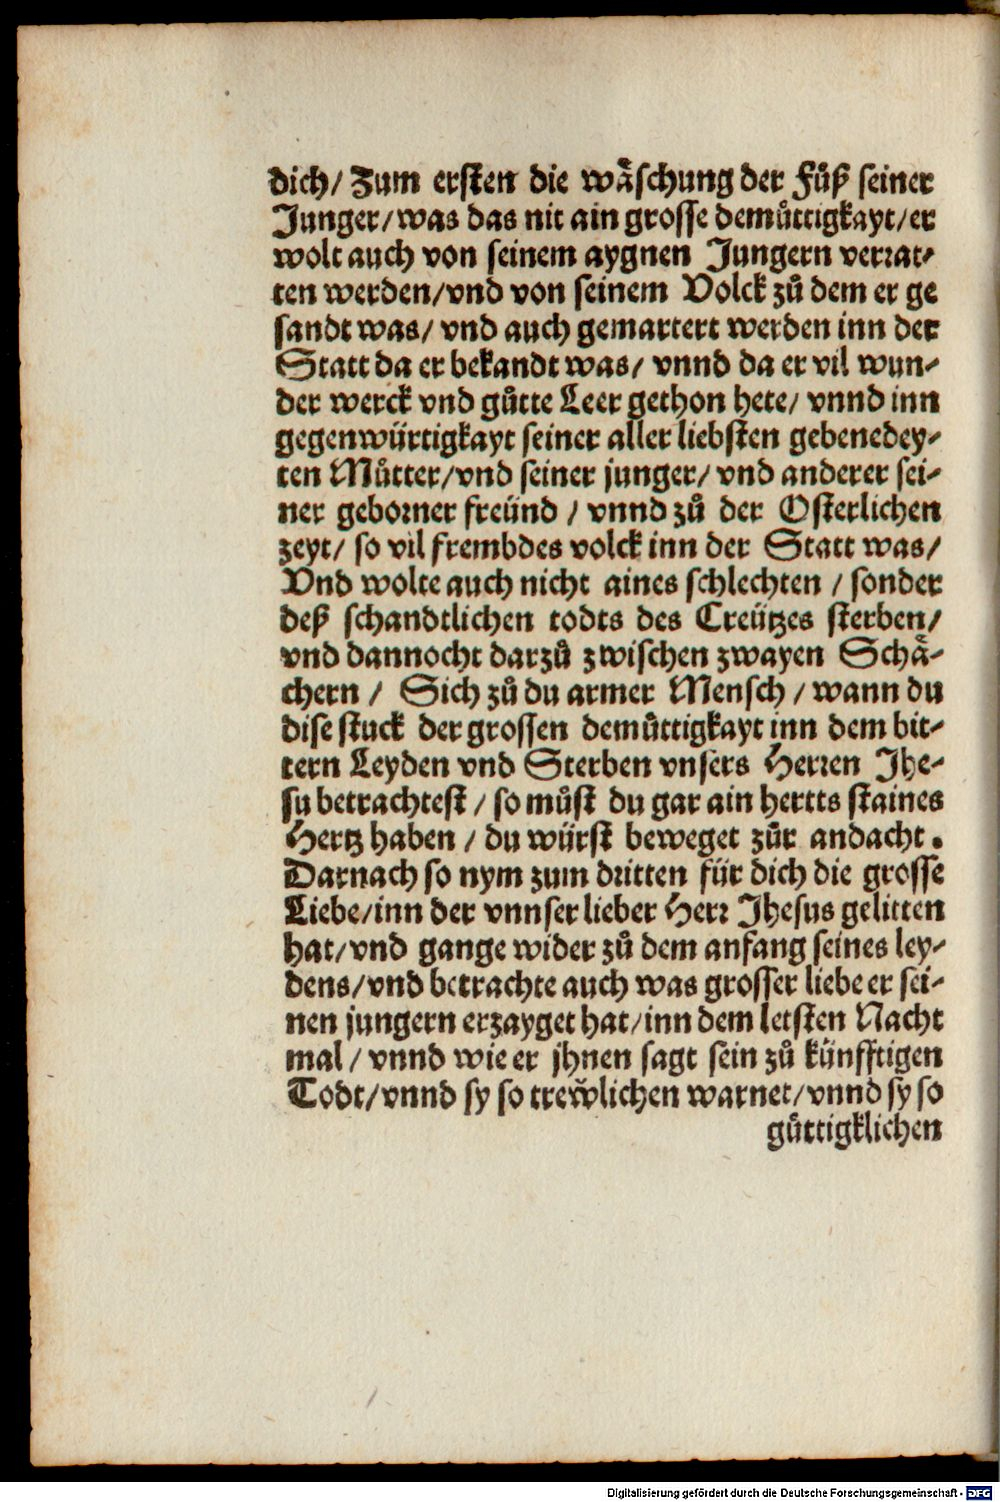 dich/ Zum ersten die wäschung der Füß seiner
Junger/was das nit ain grosse demůttigkayt/er
wolt auch von seinem aygnen Jungern verrat-
ten werden/vnd von seinem Volck zů dem er ge
sandt was/ vnd auch gemartert werden inn der
Statt da er bekandt was/ vnnd da er vil wun-
der werck vnd gůtte Leer gethon hete/ vnnd inn
gegenwürtigkayt seiner aller liebsten gebenedey-
ten Můtter/vnd seiner junger/ vnd anderer sei-
ner geborner freünd / vnnd zů der Osterlichen
zeyt/ so vil frembdes volck inn der Statt was/
Vnd wolte auch nicht aines schlechten / sonder
deß schandtlichen todts des Creützes sterben/
vnd dannocht darzů zwischen zwayen Schä-
chern / Sich zů du armer Mensch / wann du
dise stuck der grossen demůttigkayt inn dem bit-
tern Leyden vnd Sterben vnsers Herren Jhe-
su betrachtest / so můst du gar ain hertts staines
Hertz haben / du würst beweget zůr andacht.
Darnach so nym zum dritten für dich die grosse
Liebe/inn der vnnser lieber Herr Jhesus gelitten
hat/vnd gange wider zů dem anfang seines ley-
dens/vnd betrachte auch was grosser liebe er sei-
nen jungern erzayget hat/inn dem letsten Nacht
mal / vnnd wie er jhnen sagt sein zů künfftigen
Todt/vnnd sy so trewͤlichen warnet/vnnd sy so
güttigklichen
Digitalisierung gefördert durch die Deutsche Forschungsgemeinschaft - DFG